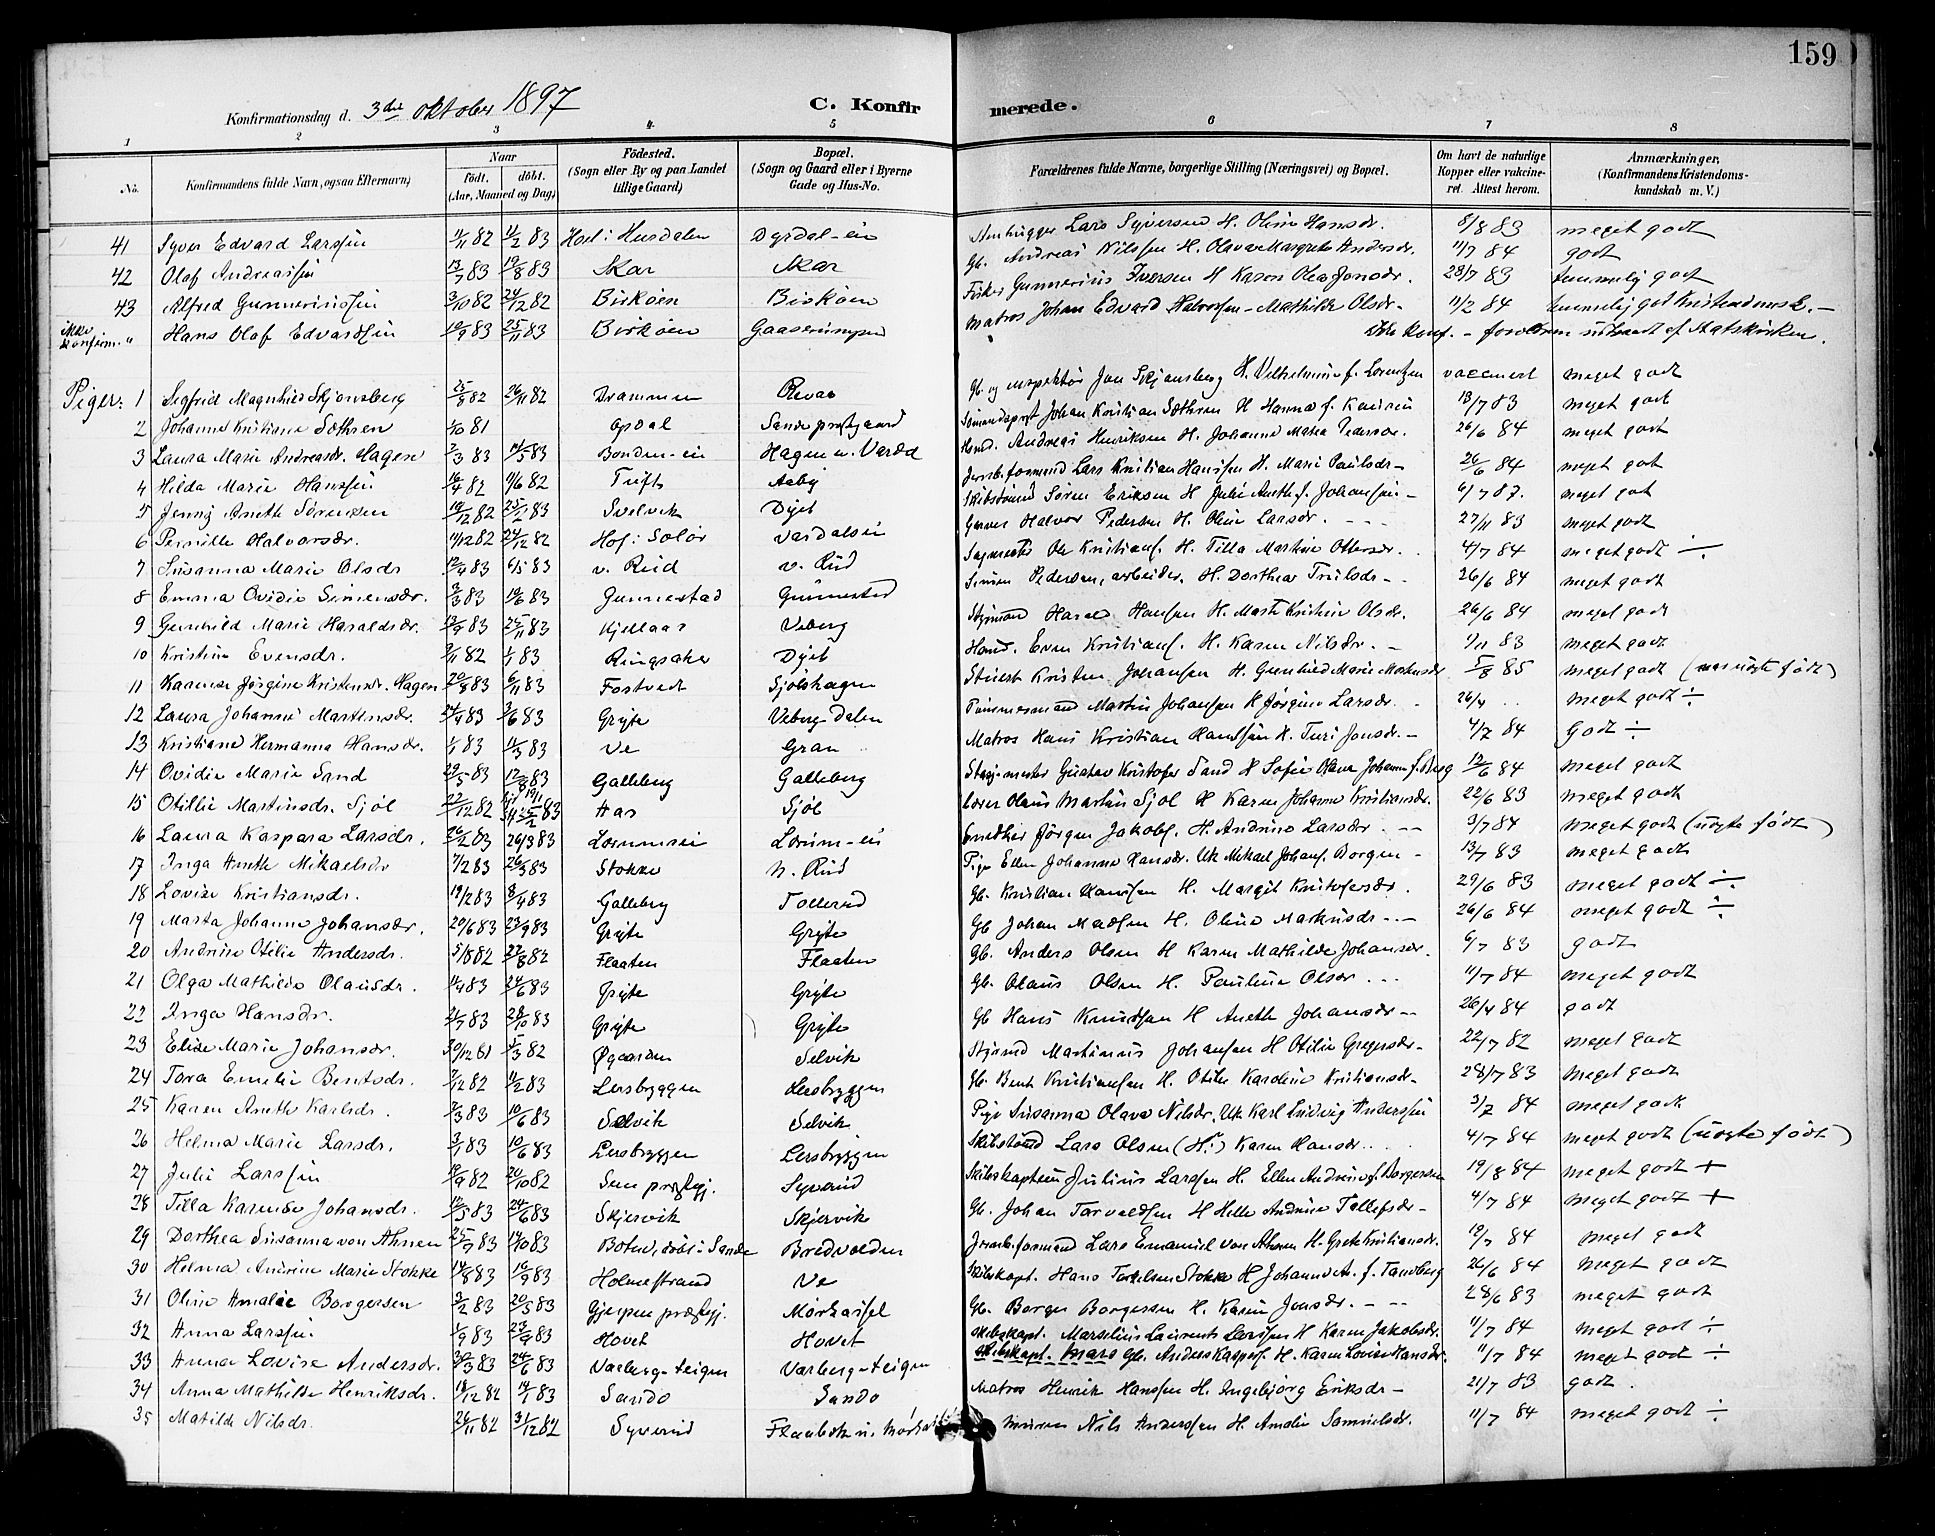 159
Konfirmationsdag d. 3die oktober 1897 C. Konfirmerede.
1 2 3 4 5 6 7 8
No. Konfirmandens fulde Navn, ogsaa Efternavn) Naar født. døbt. (Aar, Maaned og Dag) Fødested. (Sogn eller By og paa Landet tillige Gaard) Bopæl. (Sogn og Gaard eller i Byerne Gade og Hus-No. Forældrenes fulde Navne, borgerlige Stilling (Næringsvei) og Bopæl. Om havt de naturlige Kopper eller vakcineret. Attest herom. Anmærkninger, (Konfirmandens Kristendomskundskab m. V.)
41 Syver Edvard Larssen 11/11 82 11/2 83 Hurdalen Dyrdal-ein Lars Syversen H. Oline Hansdr. 8/8 83 meget godt
42 Olaf Andreassen 13/7 83 19/8 83 Skar Skar Gb. Andreas Nilssen H. Olava Margrete Andersdr. 11/7 84 godt
43 Alfred Gunneriussen 3/10 82 24/12 82 Birkøen Birkøen Fisker Gunnerius Iversen H Karen Olea Jonsdr. 28/7 83 temmelig godt
ikke konfirm. " Hans Olaf Edvardsen 10/9 83 25/11 83 Birkøen Gaaserumpen Matros Johan Edvard Halvorsen - Mathilde Olsdr - 11/2 84 temmelig got
ikke konf. - forældrene udtraadt af Statskirken.
Piger: 1 Sigfrid Magnhild Skjønsberg 25/8 82 26/11 82 Drammen Revaa Gb. og inspektør Jon Skjønsberg H. Vilhelmine f. Lorentzen vaccinert meget godt
2 Johanne Kristiane Søthren 1/10 81 Opdal Sande prestgaard Johan Kristian Søthren H Hanna f. 18/7 83 meget godt
3 Laura Marie Andreasdr. Hagen 2/3 83 14/5 83 Bonden-ein Hagen u. Andreas Henriksen H. Johanne Matea Pedersdr. 26/6 84 meget godt
4 Hilda Marie Hanssen 16/4 82 11/6 82 Tuft Aaby Jernb.formand Lars Kristian Hanssen H. Marie Paulsdr - 26/6 84 meget got
5 Jenny Anette Sørensen 10/12 82 25/1 83 Svelvik Dyet Skibstømd Søren Eriksen H Julie Aneth f. Johansen - 6/7 87. meget got
6 Pernille Halvorsdr. 11/12 82 24/12 82 Hof i Solør Vardalsein Garver Halvor Pedersen H. Oline Larsdr. 27/11 83 meget godt
7 Susanna Marie Olsdr 12/4 83 6/5 83 v. Rud v. Rud Sagmester Ole Kristians. H. Tilla Martine Ottersdr. 4/7 84 meget godt ÷
8 Emma Ovidie Simensdr. 2/3 83 10/6 83 Gunnestad Gunnestad Simen Pedersen, arbeider. H. Dorthea Trulsdr - 26/6 84 meget godt
9 Gunhild Marie Haraldsdr. 12/9 83 25/11 83 Kjellaas Veberg Styrmand Harald Hansen H. Marte Kristine Olsdr. 26/6 84 meget godt
10 Kristine Evensdr. 2/11 82 1/1 83 Ringsaker Dyet Hmd. Even Kristians. H. Karen Nilsdr. - 1/11 83 meget godt
11 Karense Jørgine Kristensdr. Hagen 20/8 83 6/11 83 Fostvedt Sjølshagen Kristen Johansen H. Gunhild Marie Mortensdr 5/8 85 meget godt (uægte født)
12 Laura Johanne Martinsdr. 24/4 83 3/6 83 Gryte Veberg-Dalen Tømmermand Martin Johansen H Jørgine Larsdr. 26/4 meget godt ÷
13 Kristiane Hermanna Hansdr. 1/1 83 11/3 83 Ve Gran Matros Hans Kristian Hanssen H. Turi Jonsdr. - 4/7 84 Godt ÷
14 Ovidie Marie Sand 29/5 83 12/8 83 Galleberg Galleberg Gustav Kristofer Sand H Sofie Olava Johanne f. Berg 12/6 84 meget godt
15 Otillie Martinsdr. Sjøl 22/12 82 83 Aas Sjøl Olaus Martin Sjøl H Karen Johanne Kristiansdr. 22/6 83 meget godt
16 Laura Kaspara Larsdr. 26/2 83 26/3 83 Lørumein Lørum-ein Snedker Jørgen Jakobs. H. Andrine Larsdr. - 3/7 84 meget godt (uægte født)
17 Inga Aneth Mikaelsdr 7/2 83 26/3 83 Stokke N. Rud Pige Ellen Johanne Hansdr. Uk Mikael Johans. Borgen - 13/7 83 meget godt
18 Lovise Kristiansdr. 19/2 83 8/4 83 Galleberg Tollerud Gb. Kristian Hanssen H. Margit Kristofersdr. 29/6 83 meget godt ÷
19 Marta Johanne Johansdr. 20/6 83 23/9 83 Gryte Gryte Gb Johan Madsen H. Oline Markusdr - 26/6 84 meget godt ÷
20 Andrine Otilie Andersdr. 5/8 82 27/8 82 Flaaten Flaaten Gb. Anders Olsen H Karen Mathilde Johansdr. 6/7 83 godt
21 Olga Mathilde Olausdr. 11/4 83 24/6 83 Gryte Gryte Gb. Olaus Olsen H. Pauline Olsdr 11/7 84 meget godt
22 Inga Hansdr. 21/7 83 28/10 83 Gryte Gryte Gb Hans Knudsen H Aneth Johansdr - 26/4 84 godt
23 Elise Marie Johansdr. 30/12 81 5/3 82 Øgaarden Selvik Styrmd Martinius Johansen H Otilie Gregersdr - 22/7 82 meget godt
24 Tora Emelie Bentsdr. 7/12 82 11/2 83 Lersbryggen Lersbryggen Gb. Bent Kristiansen H. Otilie Karoline Kristiansdr - 28/7 83 meget godt
25 Karen Aneth Karlsdr. 7/3 83 10/6 83 Selvik Selvik Pige Susanna Olava Nilsdr. Uk Karl Ludvig Anderssen 3/7 84 meget godt
26 Helma Marie Larsdr. 3/1 83 10/6 83 Lersbryggen Lersbryggen Skibstømd Lars Olsen (H.) Karen Hansdr 4/7 84 meget godt (uægte født)
27 Julie Larssen 19/9 82 20/10 82 Sem præstgj. Syverud Skibskaptein Julius Larssen H. Ellen Andrine f. Borgersen 19/8 84 meget godt +
28 Tilla Karense Johansdr. 12/5 83 24/6 83 Skjervik Skjervik Gb. Johan Torvaldsen H Helle Andrine Tollefsdr - 4/7 84 meget godt +
29 Dorthea Susanna von Ahnen 25/7 83 14/10 83 Botne, døbt i Sande Bredvolden Jernb.formand Lars Emanuel von Ahnen H. Grete Kristiansdr. 12/7 84 meget godt
30 Helma Andrine Marie Stokke 14/8 83 16/9 83 Holmestrand Ve Skibskapt. Hans Torkelsen Stokke H Johanne A. f. Tandberg 26/6 84 meget godt
31 Oline Amalie Borgersen 2/2 83 20/5 83 Gjerpen præstgj. Mørkassel Gb. Borger Borgersen H. Karen Jonsdr. - 28/6 83 meget godt
32 Anna Larssen 1/9 83 23/9 83 Hovet Hovet skibskapt. Marselius Laurents Larssen H Karen Jakobsdr. 11/7 84 meget godt ÷
33 Anna Lovise Andersdr. 30/3 83 24/6 83 Varberg-teigen Varberg-teigen Gb. Anders Kaspers. H. Karen Lovise Hansdr. 11/7 84 meget godt ÷
34 Anna Mathilde Henriksdr. 18/12 82 14/1 83 Sando Sando Matros Henrik Hanssen H. Ingebjørg Eriksdr - 21/7 83 godt.
35 Matilde Nilsdr. 26/11 82 31/12 82 Syverud Murer Nils Anderssen H. Amalie Samuelsdr. 11/7 84 meget godt ÷